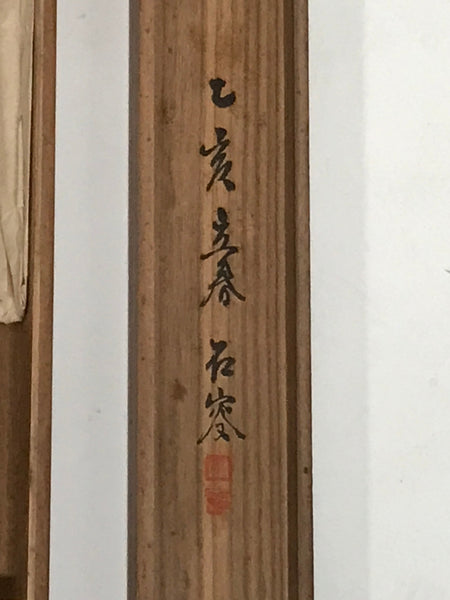 乙亥立春 石